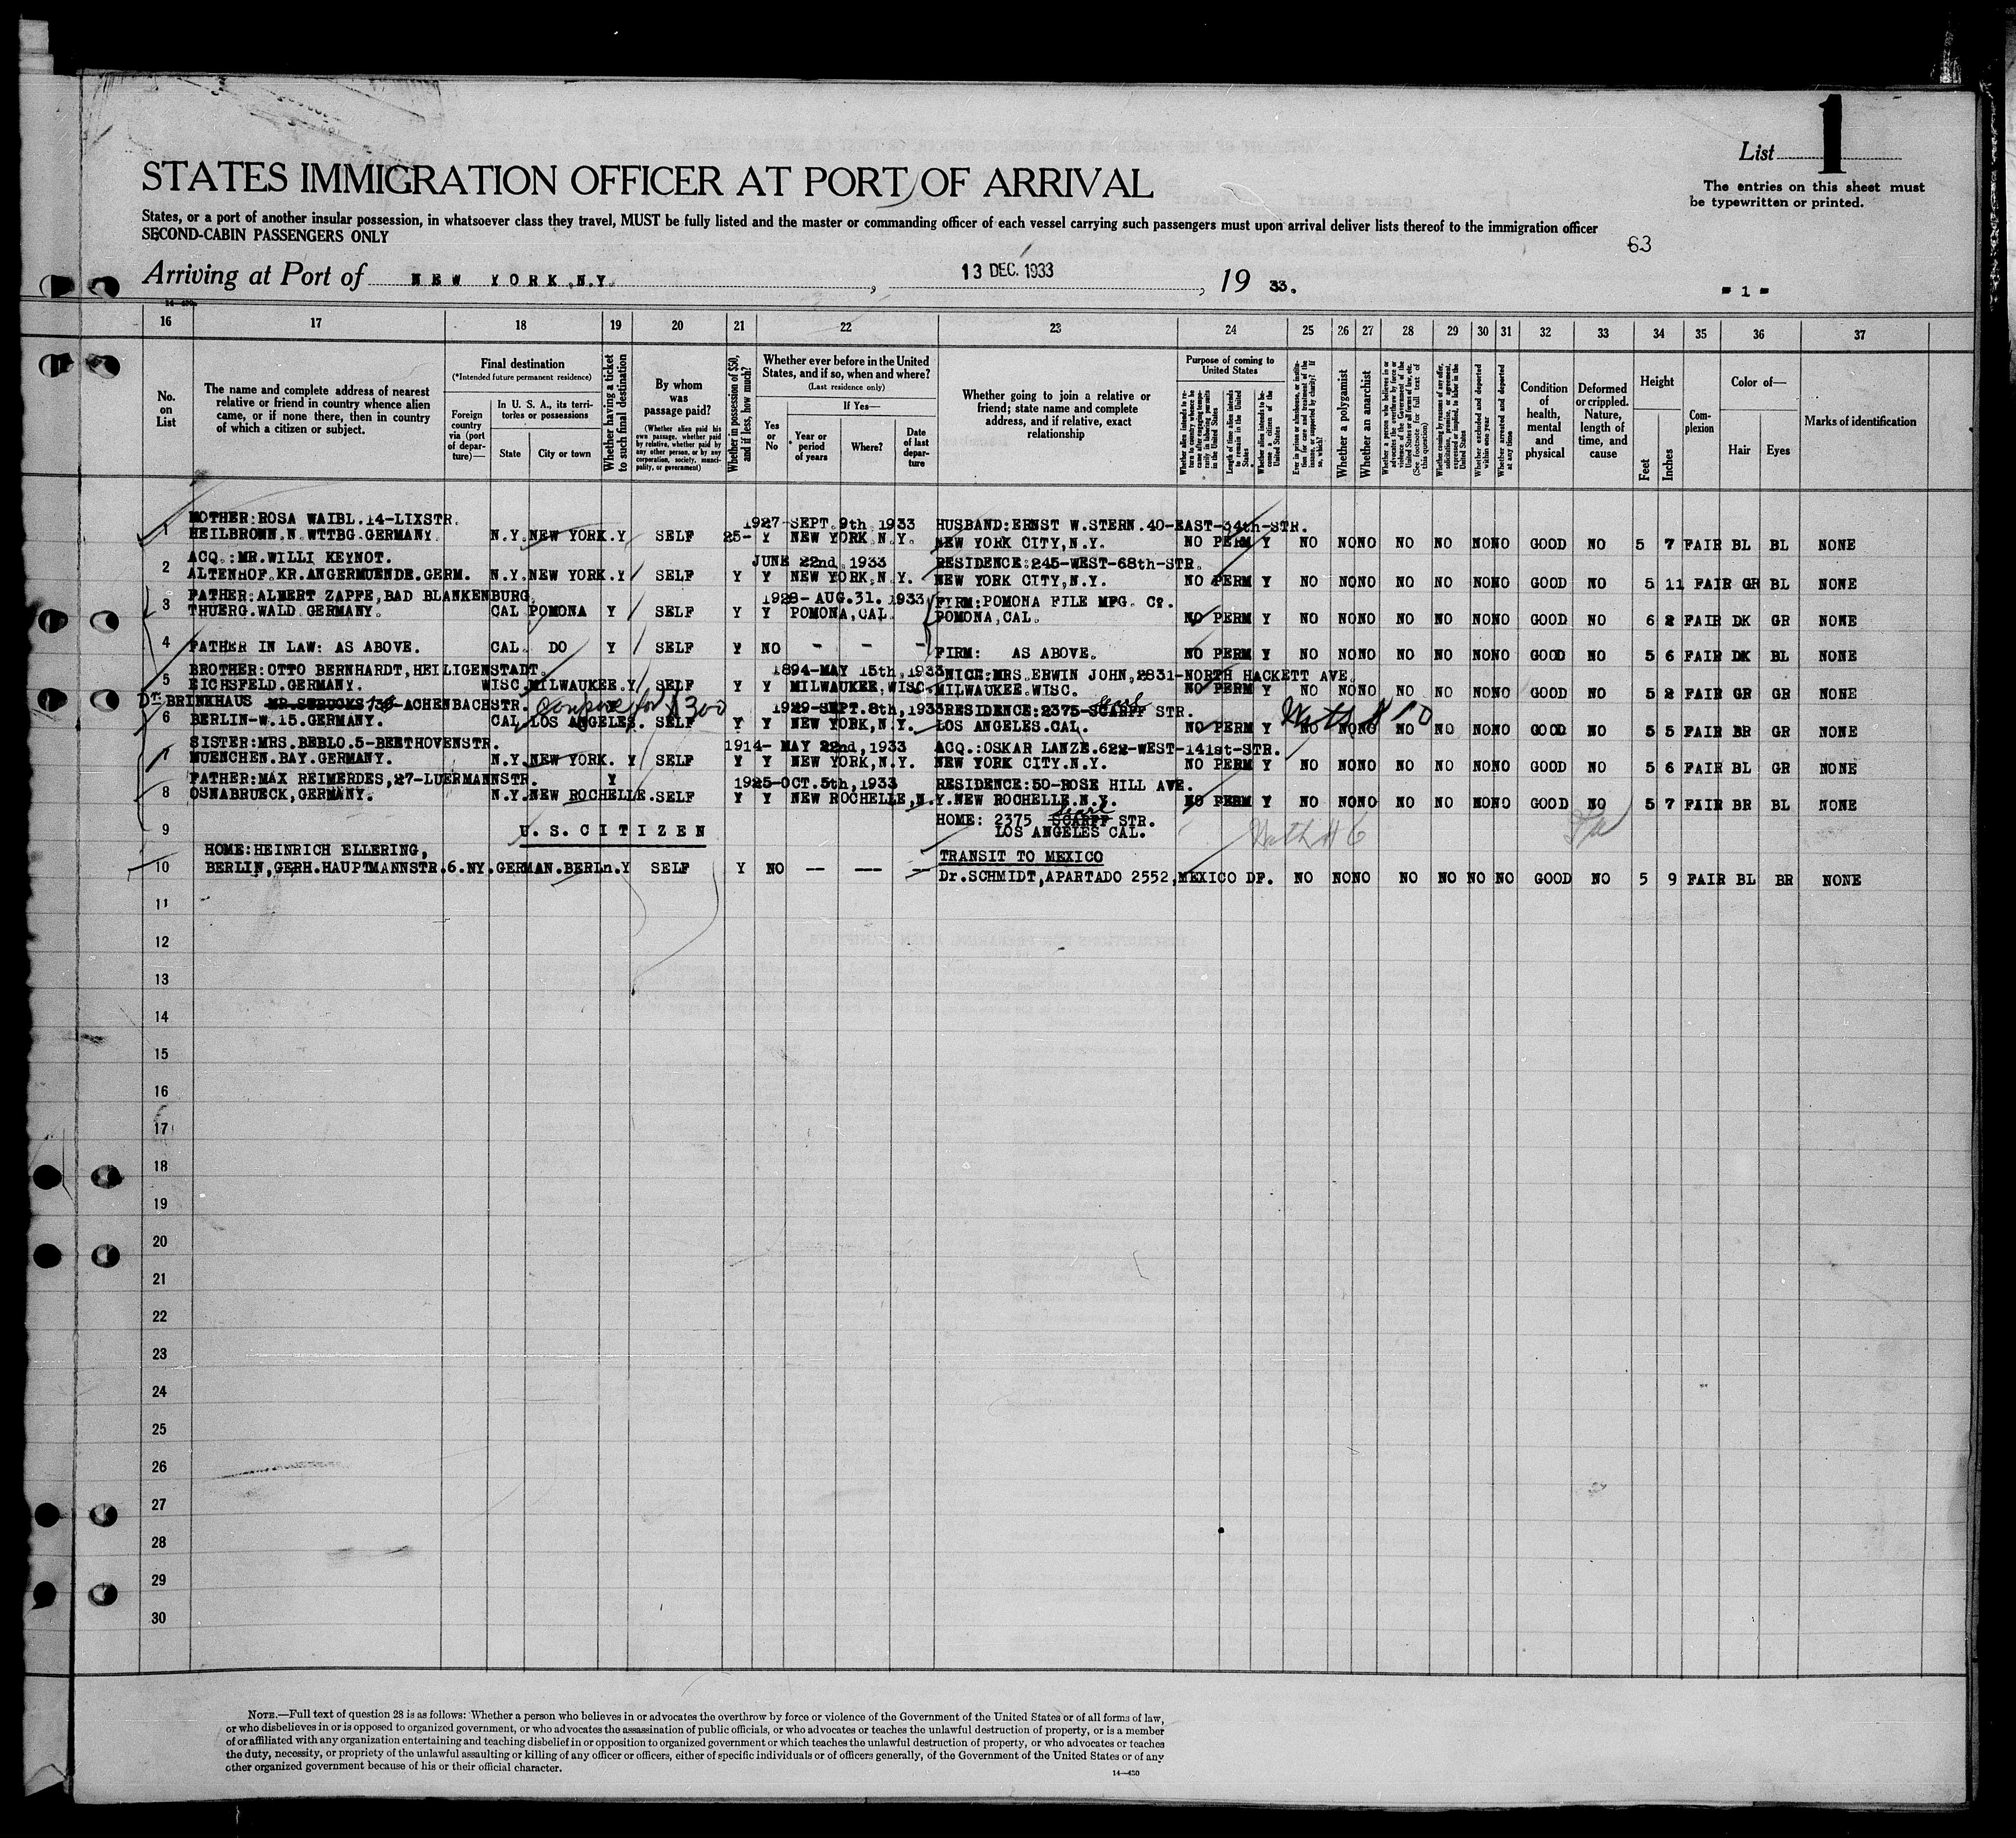 List 1
The entries on this sheet must
be typewritten or printed.
STATES IMMIGRATION OFFICER AT PORT OF ARRIVAL
States, or a port of another insular possession, in whatsoever class they travel, MUST be fully listed and the master or commanding officer of each vessel carrying such passengers must upon arrival deliver lists thereof to the immigration officer
SECOND-CABIN PASSENGERS ONLY
63
Arriving at Port of NEW YORK.N.Y. , 13 DEC. 1933 , 19 33.
- 1 -
16 17 18 19 20 21 22 23 24 25 26 27 28 29 30 31 32 33 34 35 36 37
No. on List
The name and complete address of nearest
relative or friend in country whence alien
came, or if none there, then in country
of which a citizen or subject.
Final destination
(*Intended future permanent residence)
Foreign country via (port of departure)—
In U. S. A., its territories or possessions
State
City or town
Whether having a ticket to such final destination
By whom was passage paid?
(Whether alien paid his own passage, whether paid by relative, whether paid by any other person, or by any corporation, society, municipality, or government)
Whether in possession of $50, and if less, how much?
Whether ever before in the United
States, and if so, when and where?
(Last residence only)
Yes or No
If Yes—
Year or period of years
Where?
Date of last departure
Whether going to join a relative or
friend; state name and complete
address, and if relative, exact
relationship
Purpose of coming to United States
Whether a polygamist
Whether an anarchist
Whether excluded and deported within one year
Whether arrested and deported at any time
Condition of health, mental and physical
Deformed or crippled. Nature, length of time, and cause
Height
Feet
Inches
Complexion
Color of—
Hair
Eyes
Marks of identification
MOTHER:ROSA WAIBL.14-LIXSTR. 1927-SEPT.9th.1933 HUSBAND:ERNST W.STERN.40-EAST-34th-STR.
1 HEILBRONN.N.WTTBG.GERMANY. N.Y. NEW YORK. Y SELF 25- Y NEW YORK.N.Y. NEW YORK CITY,N.Y. NO PERM Y NO NO NO NO NO NO NO GOOD NO 5 7 FAIR BL BL NONE
ACQ.:MR.WILLI KEYNOT. JUNE 22nd.1933 RESIDENCE:245-WEST-68th-STR.
2 ALTENHOF.KR.ANGERMUENDE.GERM. N.Y. NEW YORK. Y SELF Y Y NEW YORK,N.Y. NEW YORK CITY,N.Y. NO PERM Y NO NO NO NO NO NO NO GOOD NO 5 11 FAIR GR BL NONE
FATHER:ALBERT ZAPFE,BAD BLANKENBURG. 1928-AUG.31.1933 FIRM:POMONA FILE MFG. Co.
3 THUERG.WALD GERMANY. CAL POMONA Y SELF Y Y POMONA,CAL. POMONA,CAL. NO PERM Y NO NO NO NO NO NO NO GOOD NO 6 2 FAIR DK GR NONE
4 FATHER IN LAW: AS ABOVE. CAL. DO Y SELF Y NO - - - FIRM: AS ABOVE. NO PERM Y NO NO NO NO NO NO NO GOOD NO 5 6 FAIR DK BL NONE
BROTHER:OTTO BERNHARDT,HEILIGENSTADT. 1894-MAY 15th,1933 NICE:MRS.ERWIN JOHN,2831-NORTH HACKETT AVE.
5 EICHSFELD.GERMANY. WISC MILWAUKEE. Y SELF Y Y MILWAUKEE,WISC. MILWAUKEE.WISC. NO PERM Y NO NO NO NO NO NO NO GOOD NO 5 2 FAIR GR GR NONE
DT: BRINKHAUS -ACHENBACHSTR. for $300 1929-SEPT.8th,1933 RESIDENCE:2375-SCARFF STR.
6 BERLIN-W.15.GERMANY. CAL LOS ANGELES. SELF Y Y NEW YORK,N.Y. LOS ANGELES.CAL. NO PERM Y NO NO NO NO NO NO NO GOOD NO 5 5 FAIR BR GR NONE
SISTER:MRS.BEBLO.5-BEETHOVENSTR. 1914- MAY 22nd,1933 ACQ.:OSKAR LANZE.622-WEST-141st-STR.
7 MUENCHEN.BAY.GERMANY. N.Y. NEW YORK. Y SELF Y Y NEW YORK,N.Y. NEW YORK CITY.N.Y. NO PERM Y NO NO NO NO NO NO NO GOOD NO 5 6 FAIR BL GR NONE
FATHER:MAX REIMERDES,27-LUERMANNSTR. Y 1925-OCT.5th,1933 RESIDENCE:50-ROSE HILL AVE.
8 OSNABRUECK,GERMANY. N.Y. NEW ROCHELLE. SELF Y Y NEW ROCHELLE,N.Y. NEW ROCHELLE.N.Y. NO PERM Y NO NO NO NO NO NO NO GOOD NO 5 7 FAIR BR BL NONE
HOME: 2375 SCARFF STR.
9 U.S.CITIZEN LOS ANGELES CAL.
HOME:HEINRICH ELLERING, TRANSIT TO MEXICO
10 BERLIN,GERH.HAUPTMANNSTR.6.NY.GERMAN.BERLn.Y SELF Y NO — — — Dr.SCHMIDT,APARTADO 2552,MEXICO DF. NO NO NO NO NO NO NO GOOD NO 5 9 FAIR BL BR NONE
11
12
13
14
15
16
17
18
19
20
21
22
23
24
25
26
27
28
29
30
NOTE.—Full text of question 28 is as follows: Whether a person who believes in or advocates the overthrow by force or violence of the Government of the United States or of all forms of law,
or who disbelieves in or is opposed to organized government, or who advocates the assassination of public officials, or who advocates or teaches the unlawful destruction of property, or is a member
of or affiliated with any organization entertaining and teaching disbelief in or opposition to organized government or which teaches the unlawful destruction of property, or who advocates or teaches
the duty, necessity, or propriety of the unlawful assaulting or killing of any officer or officers, either of specific individuals or of officers generally, of the Government of the United States or of any
other organized government because of his or their official character.
14—430